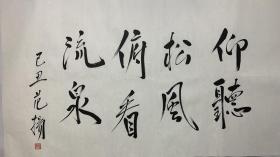 仰聽
松風
俯看
流泉
己丑范揚